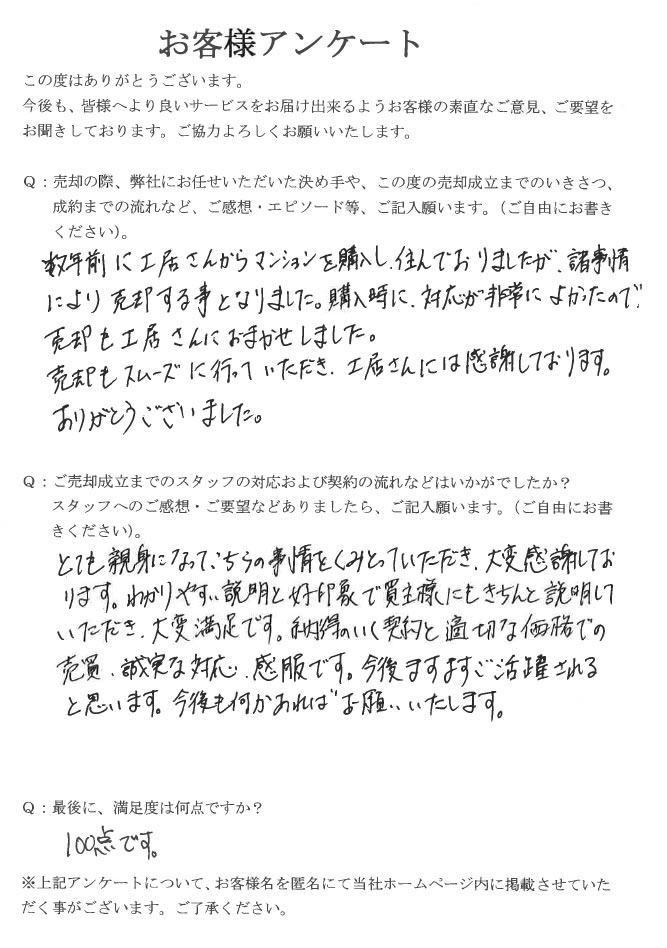 お客様アンケート
この度はありがとうございます。
今後も、皆様へより良いサービスをお届け出来るようお客様の素直なご意見、ご要望を
お聞きしております。ご協力よろしくお願いいたします。
Q：売却の際、弊社にお任せいただいた決め手や、この度の売却成立までのいきさつ、
成約までの流れなど、ご感想・エピソード等、ご記入願います。（ご自由にお書き
ください）。
数年前に工居さんからマンションを購入し、住んでおりましたが、諸事情
により売却する事となりました。購入時に、対応が非常によかったので、
売却も工居さんにおまかせしました。
売却もスムーズに行っていただき、工居さんには感謝しております。
ありがとうございました。
Q：ご売却成立までのスタッフの対応および契約の流れなどはいかがでしたか？
スタッフへのご感想・ご要望などありましたら、ご記入願います。（ご自由にお書
きください）。
とても親身になって、こちらの事情をくみとっていただき、大変感謝してお
ります。わかりやすい説明と好印象で買主様にもきちんと説明して
いただき、大変満足です。納得のいく契約と適切な価格での
売買、誠実な対応、感服です。今後ますますご活躍される
と思います。今後も何かあればお願いいたします。
Q：最後に、満足度は何点ですか？
100点です。
※上記アンケートについて、お客様名を匿名にて当社ホームページ内に掲載させていた
だく事がございます。ご了承ください。